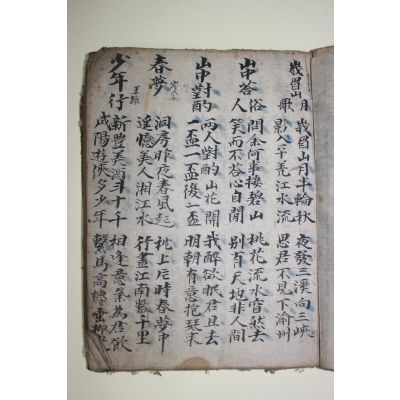 峨眉山月 峨眉山月半輪秋 夜發三溪向三峽
歌 影入平羌江水流 思君不見下渝州
山中答俗 問余何事棲碧山 桃花流水窅然去
人 笑而不答心自閒 別有天地非人間
山中對酌 兩人對酌山花開 我醉欲眠君且去
一盃一盃復一盃 明朝有意抱琴來
春夢 洞房昨夜春風起 枕上片時春夢中
遙憶美人湘江水 行盡江南數千里
少年行 王維 新豐美酒斗十千 相逢意氣為君飲
咸陽遊俠多少年 繫馬高樓垂柳